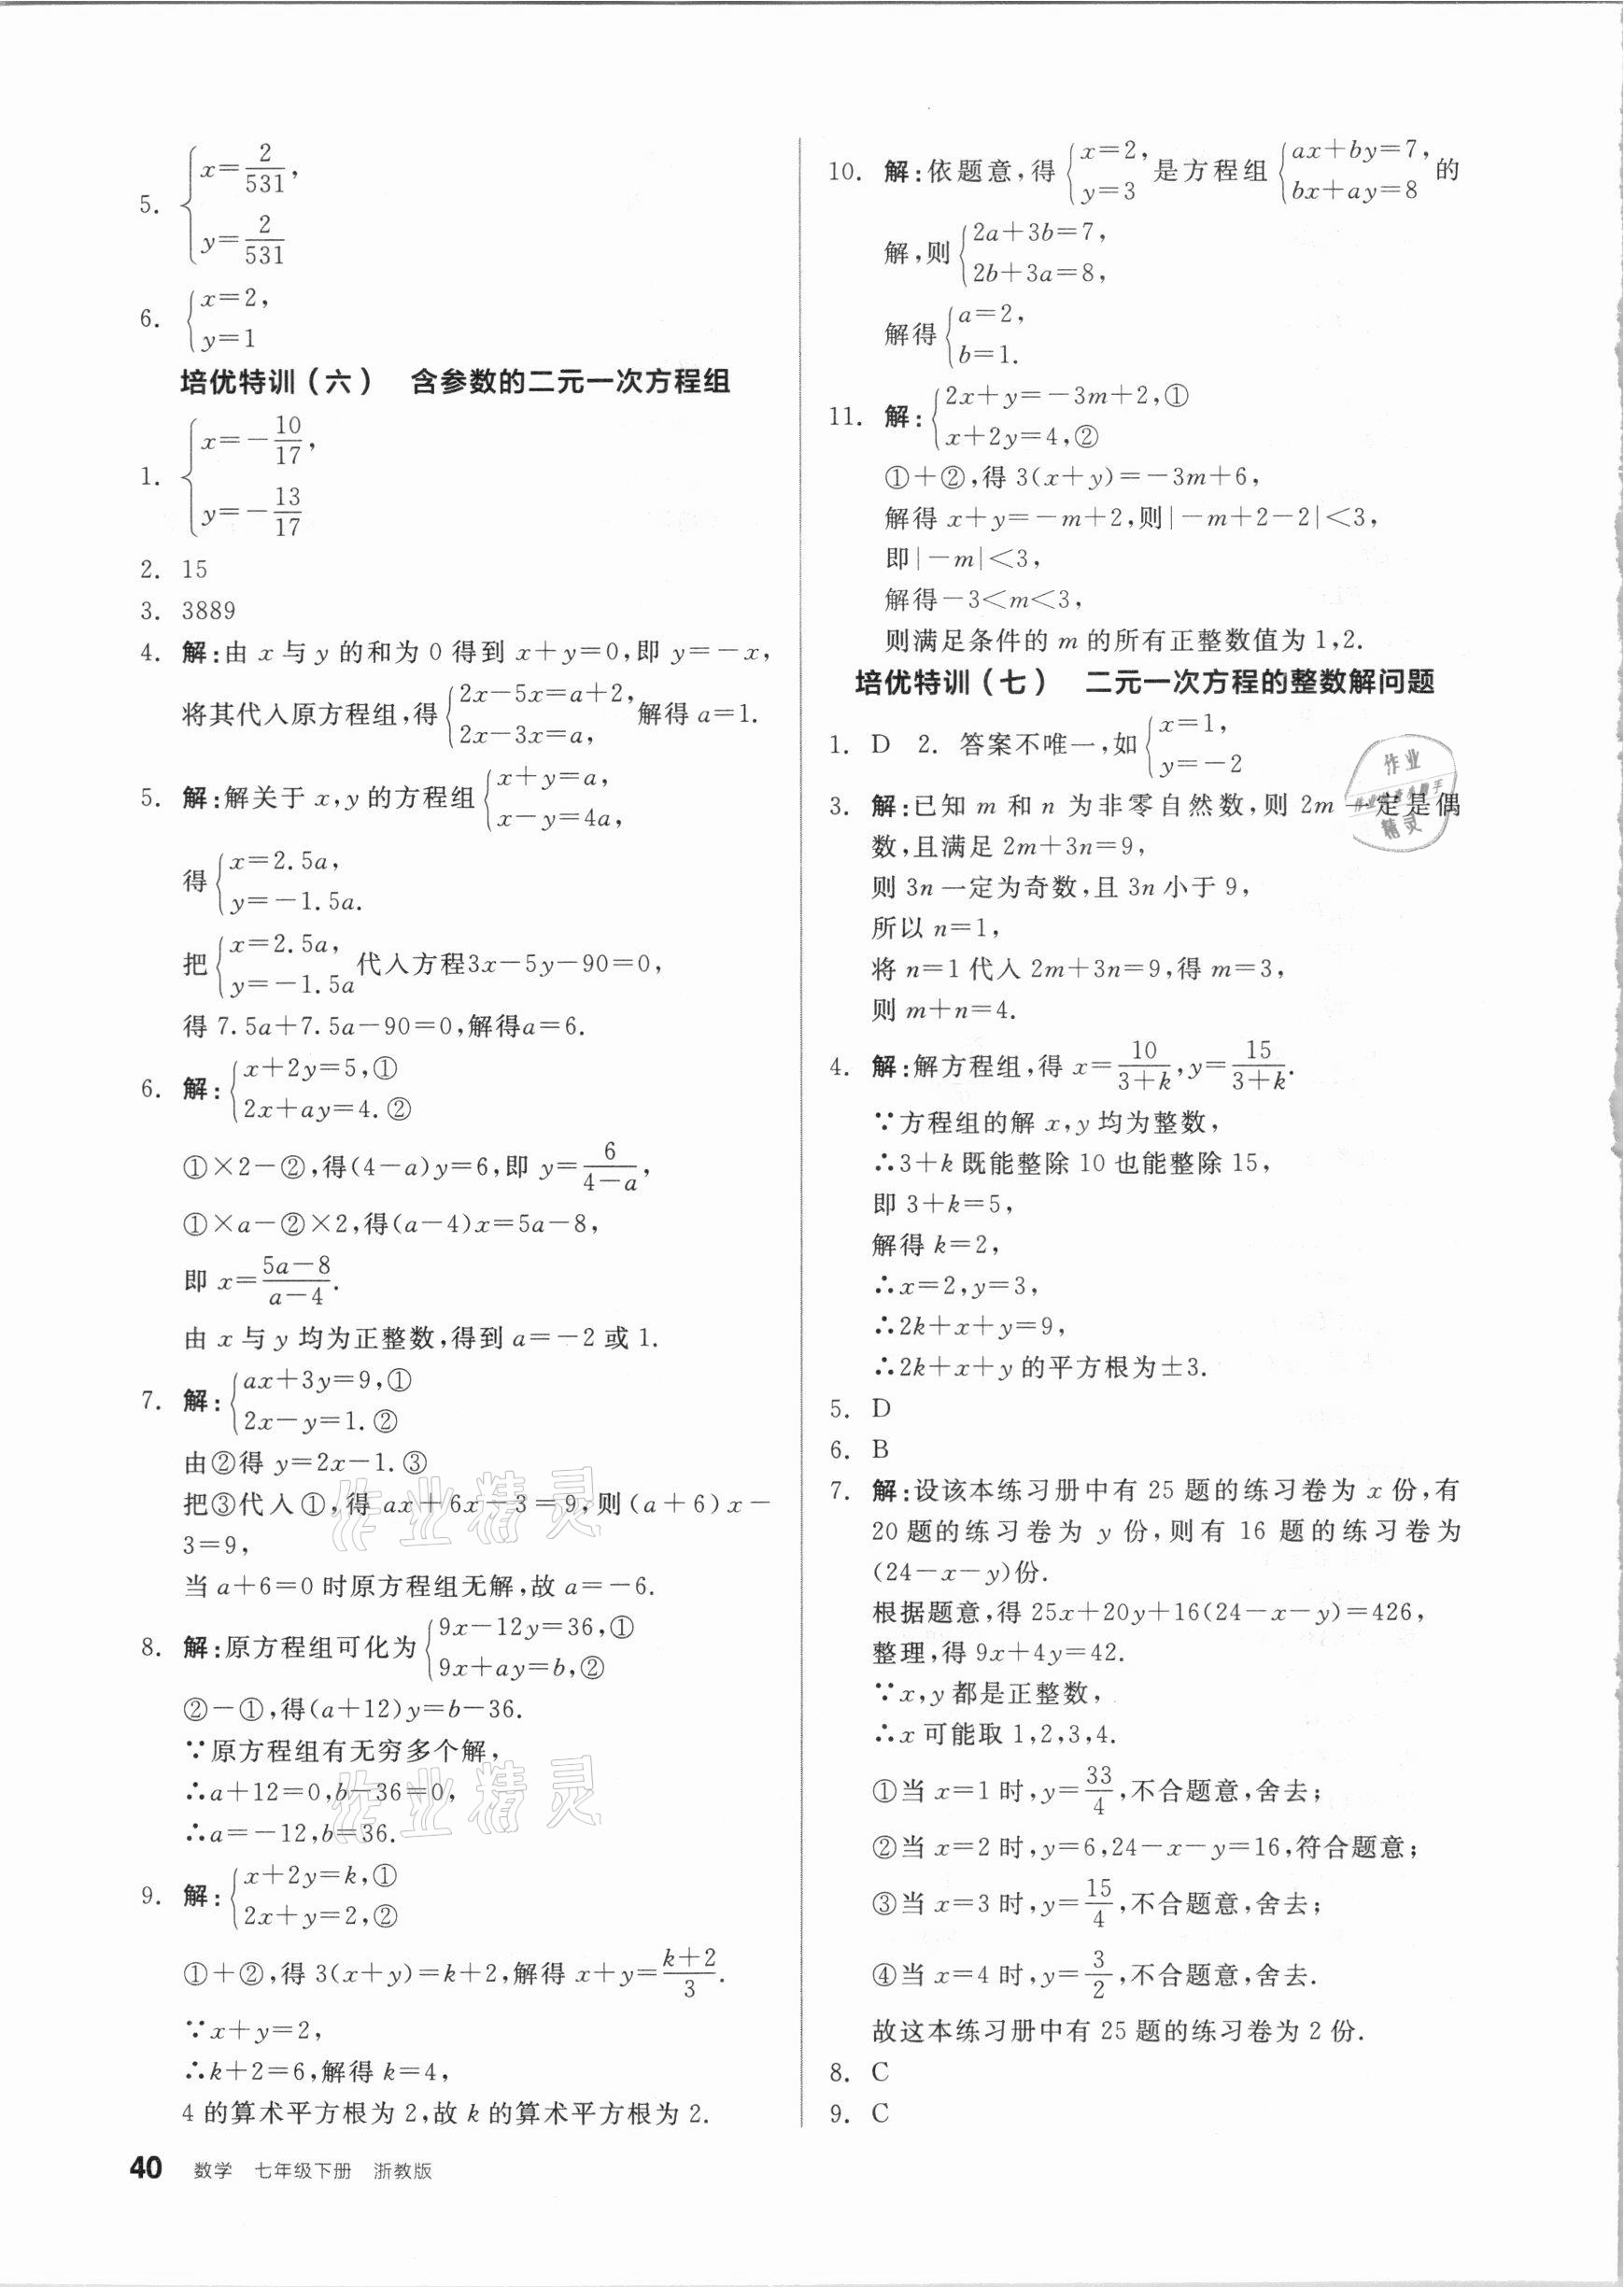 5. { x=2/531,
y=2/531
6. { x=2,
y=1
培优特训（六） 含参数的二元一次方程组
1. { x=-10/17,
y=-13/17
2. 15
3. 3889
4. 解:由 x 与 y 的和为 0 得到 x+y=0,即 y=-x,
将其代入原方程组,得 { 2x-5x=a+2, 2x-3x=a, 解得 a=1.
5. 解:解关于 x,y 的方程组 { x+y=a, x-y=4a,
得 { x=2.5a, y=-1.5a.
把 { x=2.5a, y=-1.5a 代入方程3x-5y-90=0,
得 7.5a+7.5a-90=0,解得a=6.
6. 解: { x+2y=5,① 2x+ay=4.②
①×2-②,得(4-a)y=6,即 y=6/(4-a),
①×a-②×2,得(a-4)x=5a-8,
即 x=(5a-8)/(a-4).
由 x 与 y 均为正整数,得到 a=-2 或 1.
7. 解: { ax+3y=9,① 2x-y=1.②
由②得 y=2x-1.③
把③代入①,得 ax+6x-3=9,则(a+6)x-
3=9,
当 a+6=0 时原方程组无解,故 a=-6.
8. 解:原方程组可化为 { 9x-12y=36,① 9x+ay=b,②
②-①,得(a+12)y=b-36.
∵原方程组有无穷多个解,
∴a+12=0,b-36=0,
∴a=-12,b=36.
9. 解: { x+2y=k,① 2x+y=2,②
①+②,得 3(x+y)=k+2,解得 x+y=(k+2)/3.
∵x+y=2,
∴k+2=6,解得 k=4,
4 的算术平方根为 2,故 k 的算术平方根为 2.
40 数学 七年级下册 浙教版
10. 解:依题意,得 { x=2, y=3 是方程组 { ax+by=7, bx+ay=8 的
解,则 { 2a+3b=7, 2b+3a=8,
解得 { a=2, b=1.
11. 解: { 2x+y=-3m+2,① x+2y=4,②
①+②,得 3(x+y)=-3m+6,
解得 x+y=-m+2,则|-m+2-2|<3,
即|-m|<3,
解得-3<m<3,
则满足条件的 m 的所有正整数值为 1,2.
培优特训（七） 二元一次方程的整数解问题
1. D 2. 答案不唯一,如 { x=1, y=-2
3. 解:已知 m 和 n 为非零自然数,则 2m 一定是偶
数,且满足 2m+3n=9,
则 3n 一定为奇数,且 3n 小于 9,
所以 n=1,
将 n=1 代入 2m+3n=9,得 m=3,
则 m+n=4.
4. 解:解方程组,得 x=10/(3+k),y=15/(3+k).
∵方程组的解 x,y 均为整数,
∴3+k 既能整除 10 也能整除 15,
即 3+k=5,
解得 k=2,
∴x=2,y=3,
∴2k+x+y=9,
∴2k+x+y 的平方根为±3.
5. D
6. B
7. 解:设该本练习册中有 25 题的练习卷为 x 份,有
20 题的练习卷为 y 份,则有 16 题的练习卷为
(24-x-y)份.
根据题意,得 25x+20y+16(24-x-y)=426,
整理,得 9x+4y=42.
∵x,y 都是正整数,
∴x 可能取 1,2,3,4.
①当 x=1 时,y=33/4,不合题意,舍去;
②当 x=2 时,y=6,24-x-y=16,符合题意;
③当 x=3 时,y=15/4,不合题意,舍去;
④当 x=4 时,y=3/2,不合题意,舍去.
故这本练习册中有 25 题的练习卷为 2 份.
8. C
9. C
作业精灵
作业精灵
作业
精灵